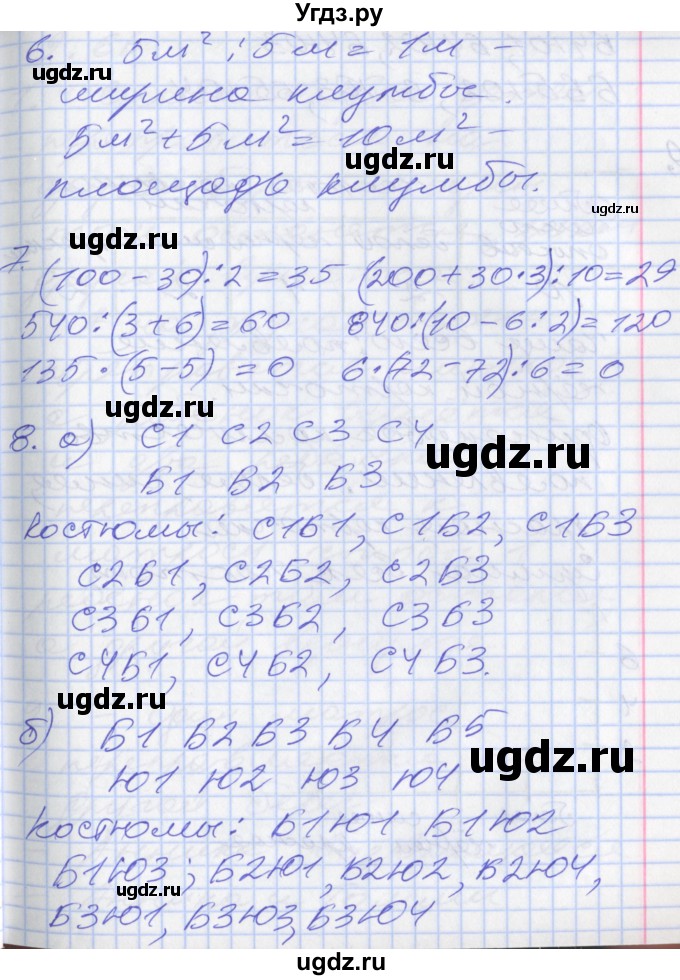 Угдз.ру
6. 5м² : 5м = 1м –
ширина клумбы.
5м² + 5м² = 10м² –
площадь клумбы.
ugdz.ru
ugdz.ru
ugdz.ru
7. (100 – 30) : 2 = 35 (200 + 30 · 3) : 10 = 29
540 : (3 + 6) = 60 840 : (10 – 6 : 2) = 120
135 · (5 – 5) = 0 6 · (72 – 72) : 6 = 0
ugdz.ru
8. а) С1 С2 С3 С4
ugdz.ru
Б1 Б2 Б3
ugdz.ru
Костюмы: С1Б1, С1Б2, С1Б3
С2Б1, С2Б2, С2Б3
ugdz.ru
С3Б1, С3Б2, С3Б3
С4Б1, С4Б2, С4Б3.
ugdz.ru
б) Б1 Б2 Б3 Б4 Б5
Ю1 Ю2 Ю3 Ю4
ugdz.ru
Костюмы: Б1Ю1 Б1Ю2
Б1Ю3; Б2Ю1, Б2Ю2, Б2Ю4,
ugdz.ru
Б3Ю1, Б3Ю3, Б3Ю4
ugdz.ru
Угдз.ру